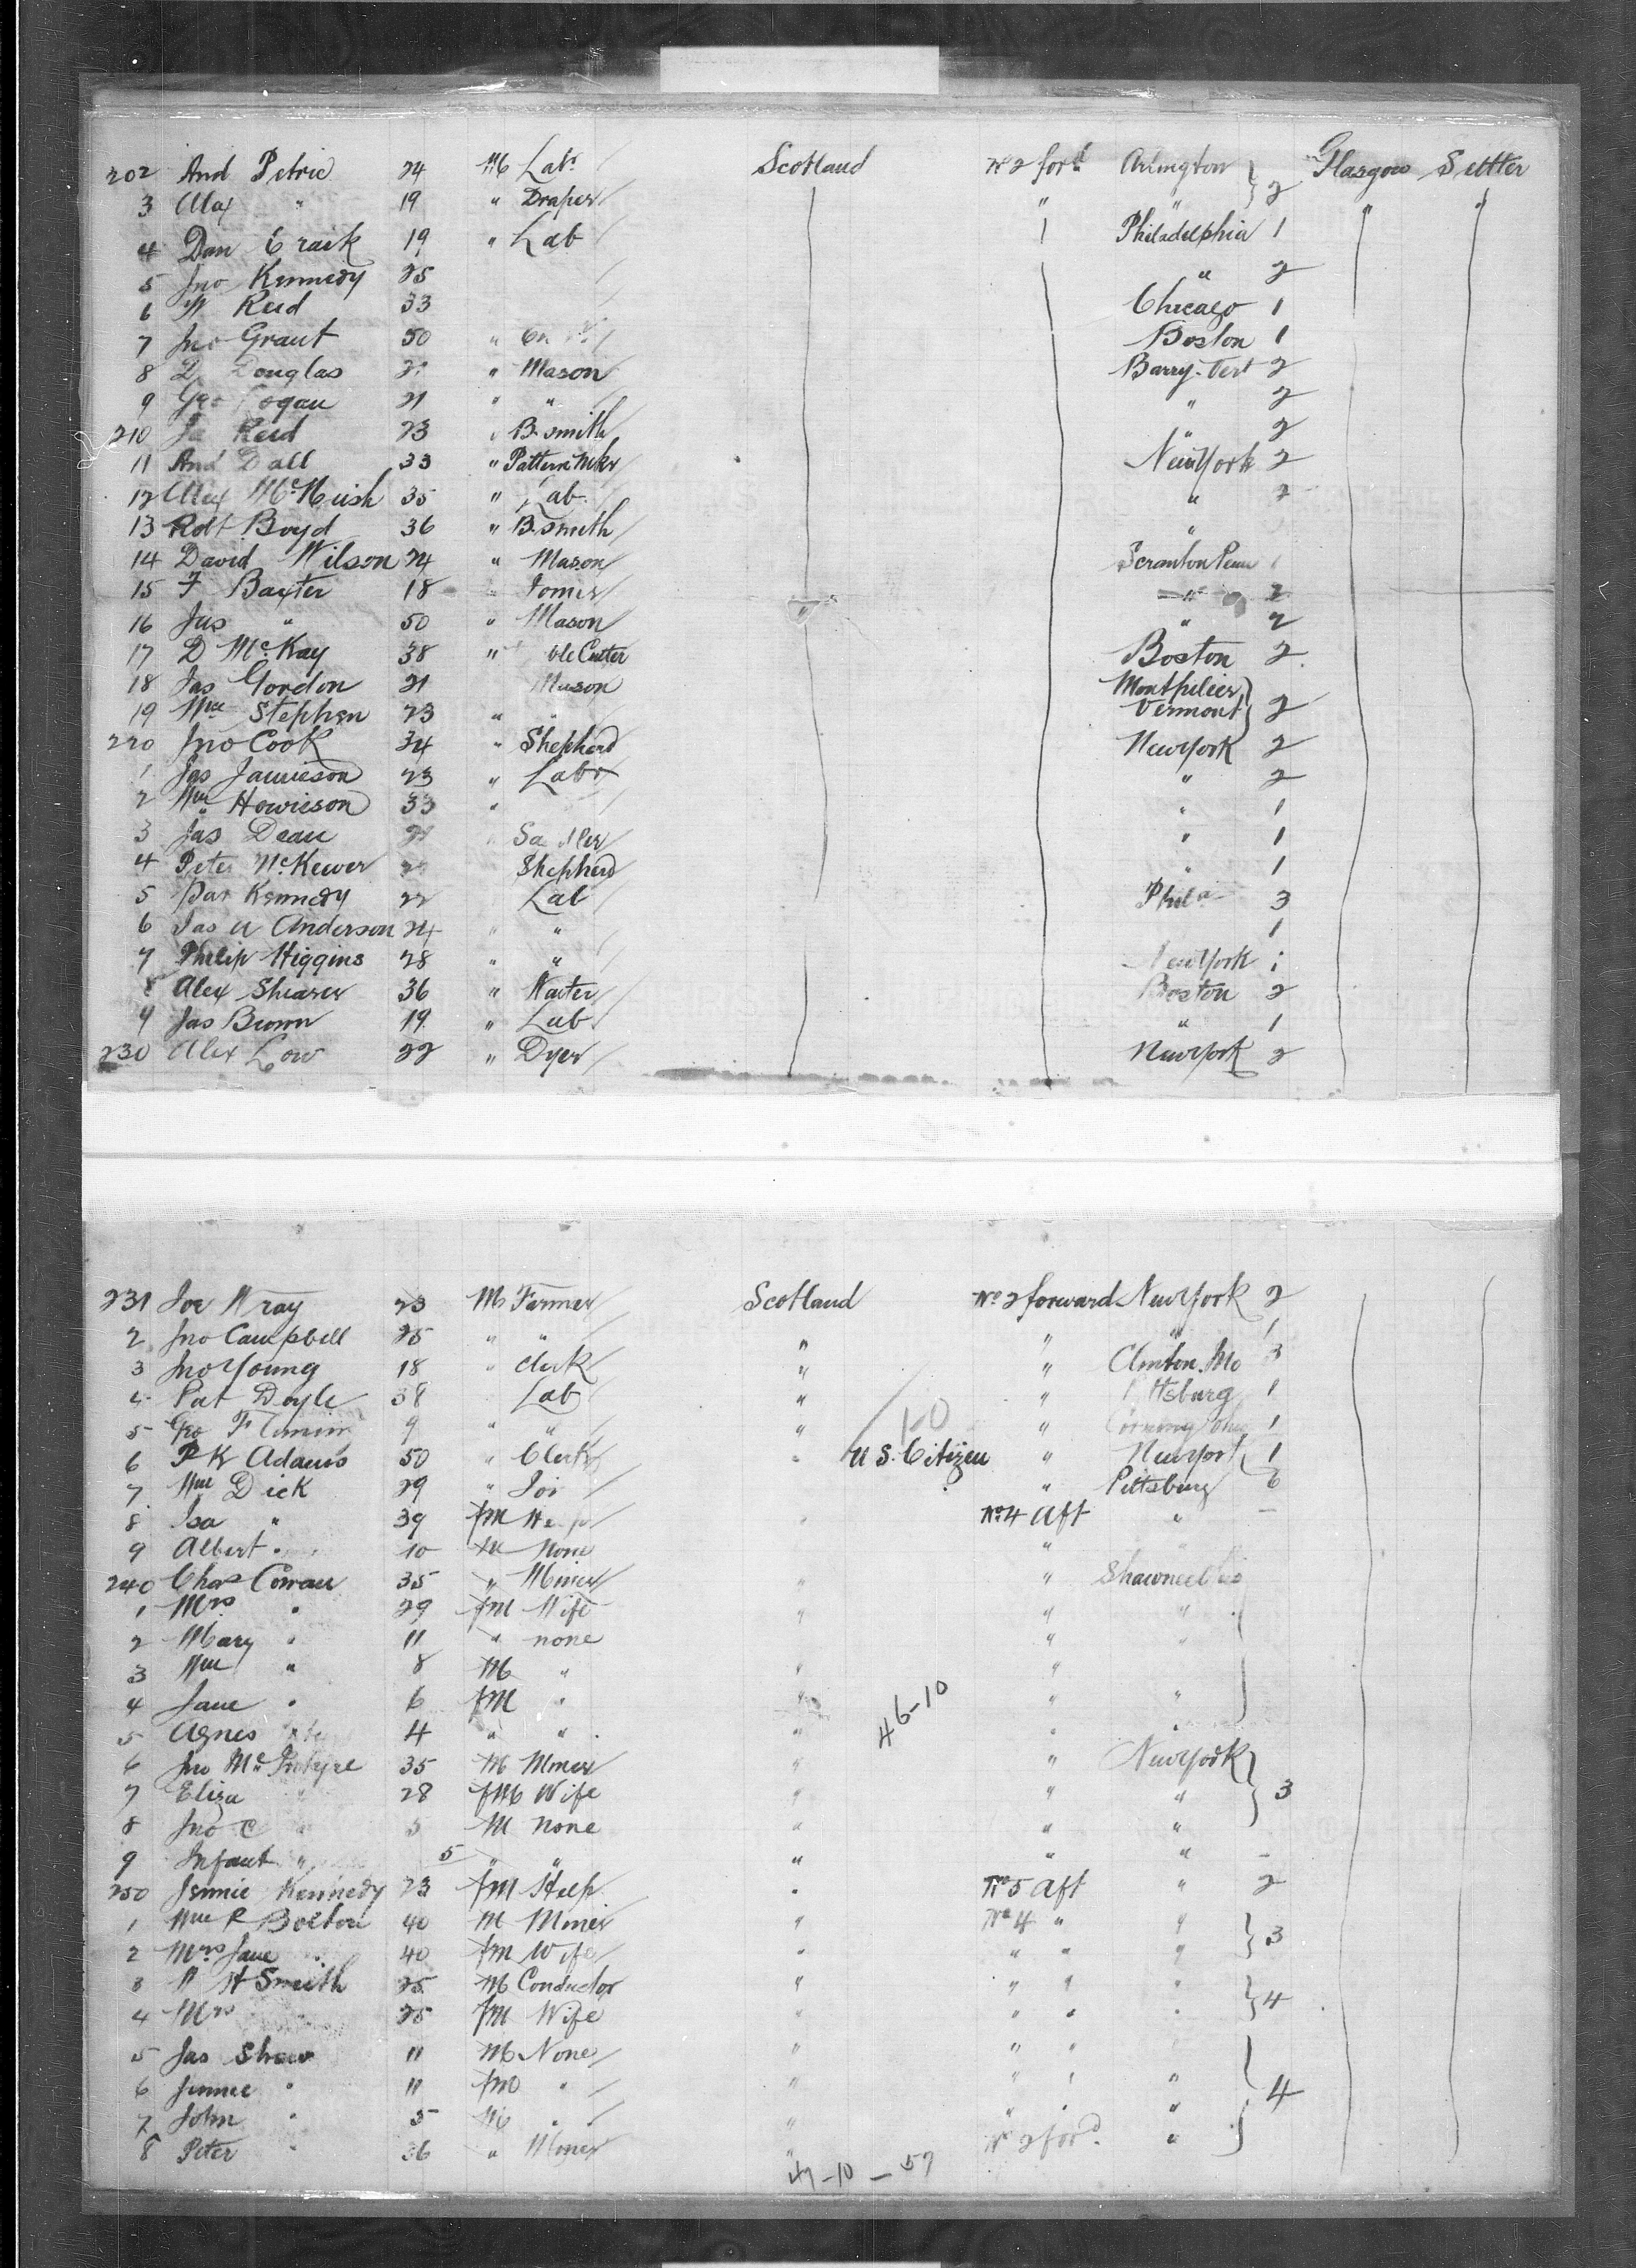 202 And Petrie 24 M Labr Scotland No 2 ford Arlington } 2 Glasgow Settler
3 Alex " 19 " Draper " " " "
4 Dan Craik 19 " Lab Philadelphia 1
5 Jno Kennedy 25 " 2
6 W Reid 33 Chicago 1
7 Jno Grant 50 " Boston 1
8 D Douglas " Mason Barry. Vert 2
9 Geo Cogan 21 " " " 2
210 Ja Reid 23 " B.smith " 2
11 And Dall 33 " Pattern Mkr New York 2
12 Alex McNeish 35 " Lab. "
13 Robt Boyd 36 " B.smith "
14 David Wilson 24 " Mason Scranton Penn
15 F Baxter 18 Joiner " 2
16 Jas " 50 " Mason " 2
17 D McKay 38 " ble Cutter Boston 2
18 Jas Gordon 21 Mason Montpelier }
19 Wm Stephen 23 " " Vermont } 2
220 Jno Cook 34 " Shepherd New York 2
1 Jas Jamieson 23 " Labr " 2
2 Wm Howieson 33 " " 1
3 Jas Dean " Sadler " 1
4 Peter McKewer Shepherd " 1
5 Kennedy 22 Lab Phila 3
6 Jas A Anderson 24 " " 1
7 Philip Higgins 28 " " New York 1
8 Alex Shearer 36 " Waiter Boston 2
9 Jas Brown 19 " Lab " 1
230 Alex Low 22 " Dyer New York 2
231 Joe Wray 23 M Farmer Scotland No 2 forward New York 2
2 Jno Campbell 25 " " " " " 1
3 Jno Young 18 " Clerk " " Clinton. Mo 3
4 Pat Doyle 38 Lab " " Pittsburg 1
5 Geo Flemim " " " " Corning Ohio 1
10
6 P K Adams 50 " Clerk " U S. Citizen " New York 1
7 Wm Dick 29 " Joi " Pittsburg 6
8 Isa " 39 fM No 4 Aft "
9 Albert " 10 M None "
240 Chas Cowan 35 " Miner " " Shawnee
1 Mrs " 29 fM Wife " " "
2 Mary " 11 " none " "
3 Wm " 8 M " " "
4 Jane " 6 fM " " " "
46-10
5 Agnes 4 " " " " "
6 Jno McIntyre 35 M Miner " " New York }
7 Eliza " 28 fM Wife " " " } 3
8 Jno C M none " " "
9 Infant " 5 " " " " " -
250 Jennie Kennedy 23 fM Help " No 5 Aft " 2
1 Wm R Bolton 40 M Miner " No 4 " " }
2 Mrs Jane " 40 fM Wife " " " " } 3
3 W H Smith 25 M Conductor " " " " }
4 Mrs 25 fM Wife " " " " } 4
5 Jas Shaw 11 M None " " "
6 Jennie " 11 fM " " " " "
7 John " 5 M " " " " " 4
8 Peter " 36 " Miner " No 2 ford. "
47-10-57